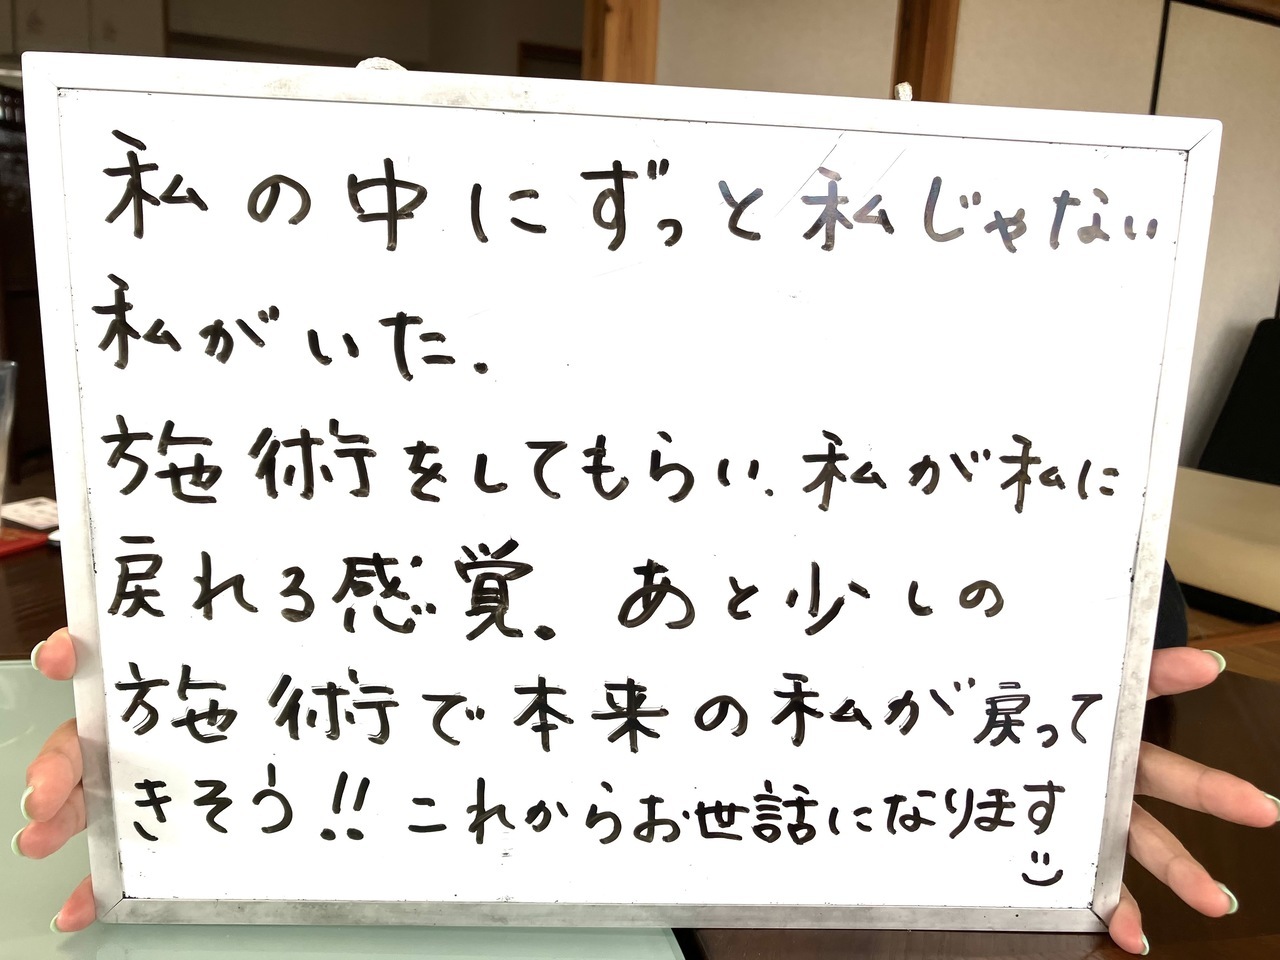 私の中にずっと私じゃない
私がいた.
施術をしてもらい.私が私に
戻れる感覚。あと少しの
施術で本来の私が戻って
きそう!!これからお世話になります